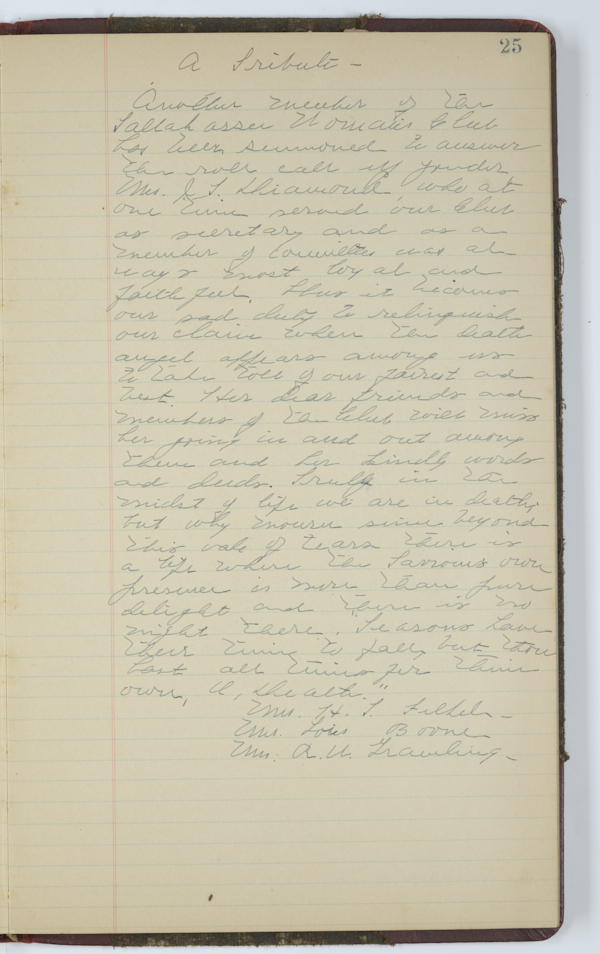 25
A Tribute —
Another member of the
Tallahassee Woman's Club
has been summoned to answer
the roll call up yonder
Mrs. J. L. who at
one time served our Club
as secretary and as a
member of committees was al
ways most loyal and
faithful. Thus it becomes
our sad duty to relinquish
our claim when the death
angel appears among us
to take toll of our fairest and
best. Her dear friends and
members of the Club will miss
her going in and out among
them and her kindly words
and deeds. Truly in the
midst of life we are in death,
but why mourn since beyond
this vale of tears there is
a life where the Saviours own
presence is more than pure
delight and there is no
night there. "Seasons have
their time to fall, but thou
hast all times for thine
own, O, Death."
Mrs. H. T.
Mrs. Lois Boone
Mrs. R. W.